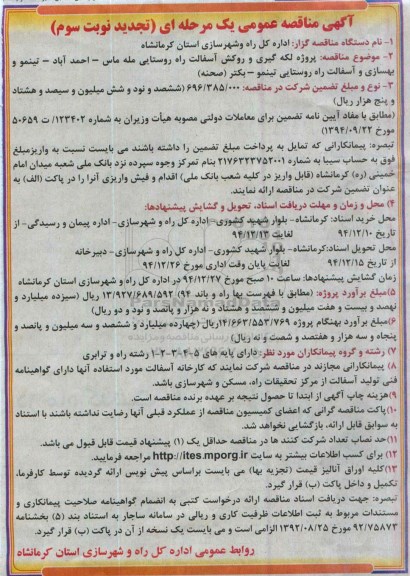 آگهی مناقصه عمومی یک مرحله ای (تجدید نوبت سوم)
۱- نام دستگاه مناقصه گزار: اداره کل راه وشهرسازی استان کرمانشاه
۲- موضوع مناقصه: پروژه لکه گیری و روکش آسفالت راه روستایی مله ماس - احمد آباد - تینمو و
بهسازی و آسفالت راه روستایی تینمو – بکتر (صحنه)
۳- نوع و مبلغ تضمین شرکت در مناقصه: ۶۹۶/۳۸۵/۰۰۰ (ششصد و نود و شش میلیون و سیصد و هشتاد
و پنج هزار ریال)
(مطابق با مفاد آیین نامه تضمین برای معاملات دولتی مصوبه هیأت وزیران به شماره ۱۲۳۴۰۲/ ت ۵۰۶۵۹
مورخ ۱۳۹۴/۰۹/۲۲)
تبصره: پیمانکارانی که تمایل به پرداخت مبلغ تضمین را داشته باشند می بایست نسبت به واریزمبلغ
فوق به حساب سیبا به شماره ۲۱۷۶۳۲۳۷۵۲۰۰۱ بنام تمرکز وجوه سپرده نزد بانک ملی شعبه میدان امام
خمینی (ره) کرمانشاه (قابل واریز در کلیه شعب بانک ملی) اقدام و فیش واریزی آنرا را در پاکت (الف) به
عنوان تضمین شرکت در مناقصه ارائه نمایند.
۴) محل و زمان و مهلت دریافت اسناد، تحویل و گشایش پیشنهادها:
محل خرید اسناد: کرمانشاه- بلوار شهید کشوری- اداره کل راه و شهرسازی- اداره پیمان و رسیدگی- از
تاریخ ۹۴/۱۲/۱۰ لغایت ۹۴/۱۲/۱۳
محل تحویل اسناد:کرمانشاه- بلوار شهید کشوری- اداره کل راه و شهرسازی- دبیرخانه
از تاریخ ۹۴/۱۲/۱۵ لغایت پایان وقت اداری مورخ ۹۴/۱۲/۲۶
زمان گشایش پیشنهادها: ساعت ۱۰ صبح مورخ ۹۴/۱۲/۲۷ در اداره کل راه و شهرسازی استان کرمانشاه
۵)مبلغ برآورد پروژه: (مطابق با فهرست بها راه و باند ۹۴) ۱۳/۹۲۷/۶۸۹/۵۹۲ ریال (سیزده میلیارد و
نهصد و بیست و هفت میلیون و ششصد و هشتاد و نه هزار و پانصد و نود و دو ریال)
۶)مبلغ برآورد بهنگام پروژه ۱۴/۶۶۳/۵۵۳/۷۶۹ریال (چهارده میلیارد و ششصد و سه میلیون و پانصد و
پنجاه و سه هزار و هفتصد و شصت و نه ریال)
۷) رشته و گروه پیمانکاران مورد نظر: دارای پایه های ۵-۴-۳-۲-۱ رشته راه و ترابری
۸) پیمانکارانی مجازند در مناقصه شرکت نمایند که کارخانه آسفالت مورد استفاده آنها دارای گواهینامه
فنی تولید آسفالت از مرکز تحقیقات راه، مسکن و شهرسازی باشد.
۹)هزینه چاپ آگهی از ابتدا تا حصول نتیجه بر عهده برنده مناقصه است.
۱۰)پاکت مناقصه گرانی که اعضای کمیسیون مناقصه از عملکرد قبلی آنها رضایت نداشته باشند با استناد
به سوابق قابل ارائه، بازگشایی نخواهد شد.
۱۱)حد نصاب تعداد شرکت کنند ها در مناقصه حداقل یک (۱) پیشنهاد قیمت قابل قبول می باشد.
۱۲) برای کسب اطلاعات بیشتر به سایت http://ites.mporg.ir مراجعه فرمایید.
۱۳)کلیه اوراق آنالیز قیمت (تجزیه بها) می بایست براساس پیش نویس ارائه گردیده توسط کارفرما،
تکمیل و داخل پاکت (ب) قرار گیرد.
تبصره: جهت دریافت اسناد مناقصه ارائه درخواست کتبی به انضمام گواهینامه صلاحیت پیمانکاری و
مستندات مربوط به ثبت اطلاعات ظرفیت کاری و ریالی در سامانه ساجار به استناد بند (۵) بخشنامه
۹۲/۷۵۸۷۳ مورخ ۱۳۹۲/۰۸/۲۵ الزامی است و می بایست یک نسخه از آن در پاکت (ب) قرار گیرد.
روابط عمومی اداره کل راه و شهرسازی استان کرمانشاه